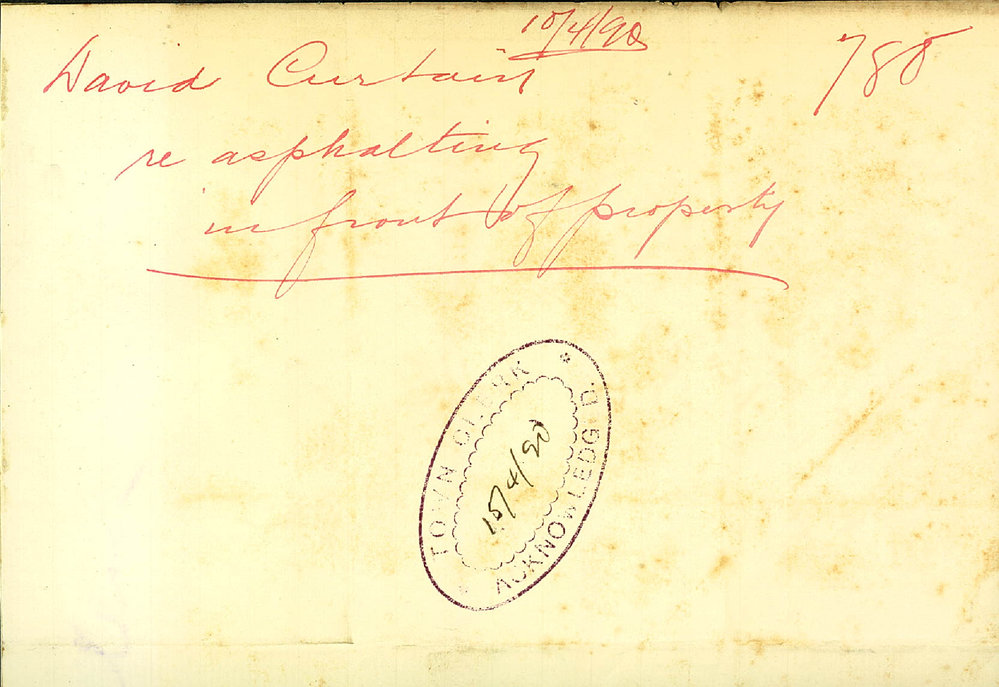 15/4/90
David Curtain 785
re asphalting
in front of property
TOWN CLERK
15/4/90
ACKNOWLEDG'D.